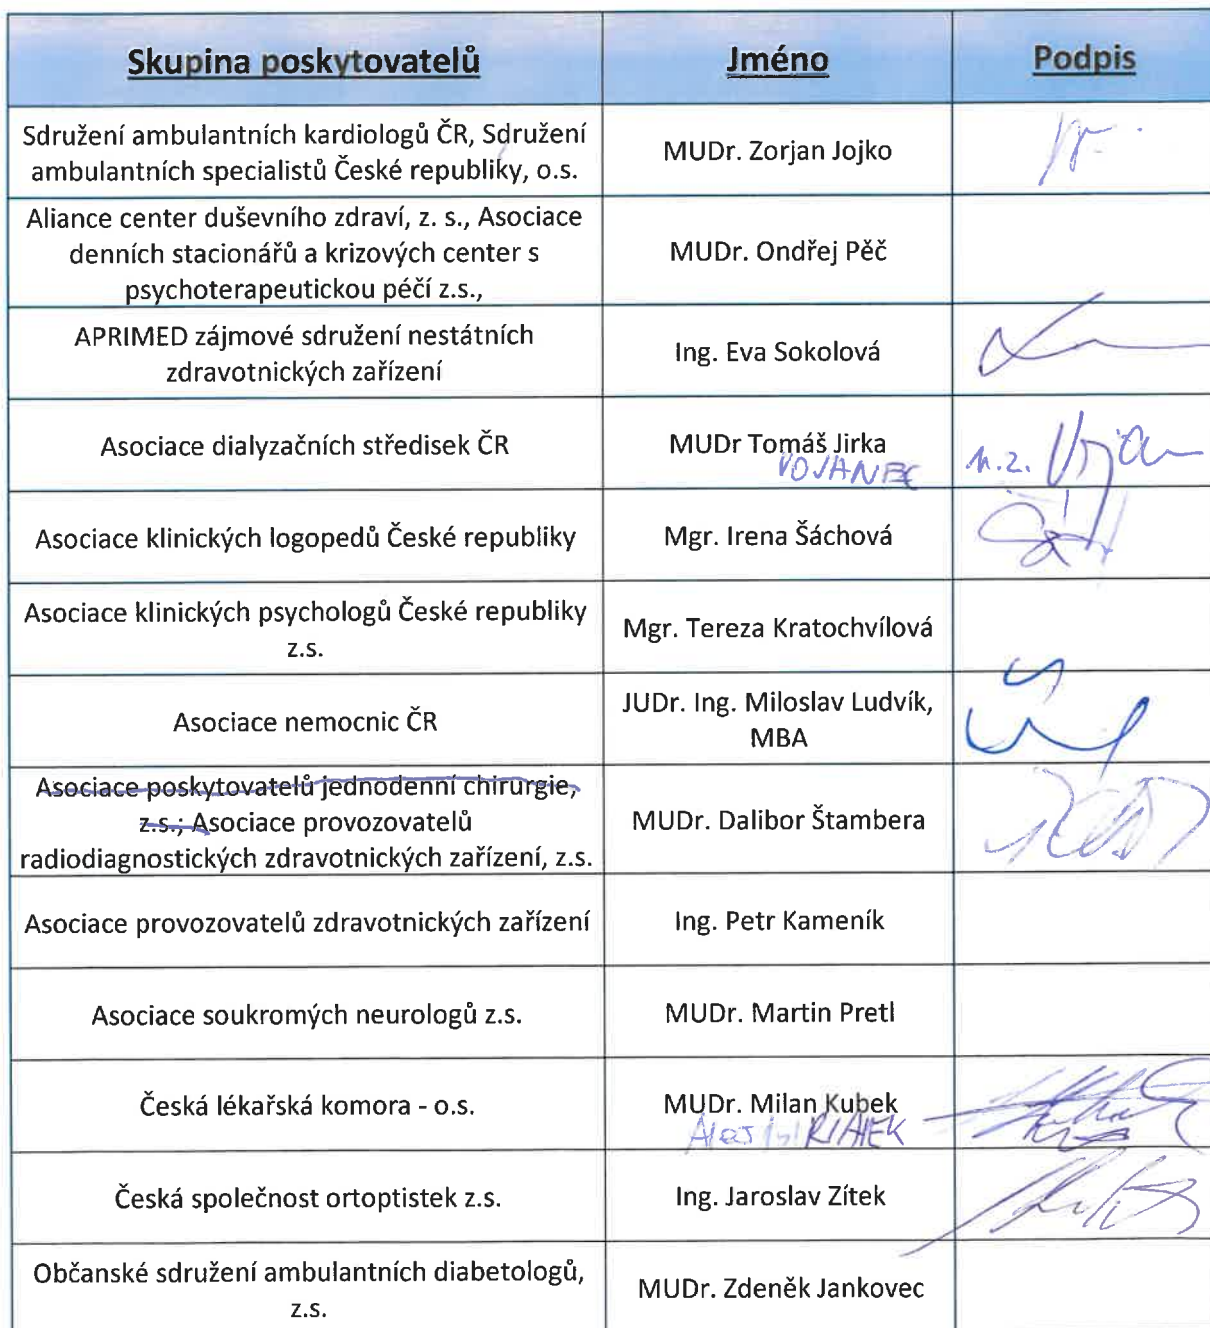 Skupina poskytovatelů
Jméno
Podpis
Sdružení ambulantních kardiologů ČR, Sdružení
ambulantních specialistů České republiky, o.s.
MUDr. Zorjan Jojko
Aliance center duševního zdraví, z. s., Asociace
denních stacionářů a krizových center s
psychoterapeutickou péčí z.s.,
MUDr. Ondřej Pěč
APRIMED zájmové sdružení nestátních
zdravotnických zařízení
Ing. Eva Sokolová
Asociace dialyzačních středisek ČR
MUDr Tomáš Jirka
VOJANEC
n.z.
Asociace klinických logopedů České republiky
Mgr. Irena Šáchová
Asociace klinických psychologů České republiky
z.s.
Mgr. Tereza Kratochvílová
Asociace nemocnic ČR
JUDr. Ing. Miloslav Ludvík,
MBA
Asociace poskytovatelů jednodenní chirurgie,
z.s.; Asociace provozovatelů
radiodiagnostických zdravotnických zařízení, z.s.
MUDr. Dalibor Štambera
Asociace provozovatelů zdravotnických zařízení
Ing. Petr Kameník
Asociace soukromých neurologů z.s.
MUDr. Martin Pretl
Česká lékařská komora - o.s.
MUDr. Milan Kubek
Česká společnost ortoptistek z.s.
Ing. Jaroslav Zítek
Občanské sdružení ambulantních diabetologů,
z.s.
MUDr. Zdeněk Jankovec